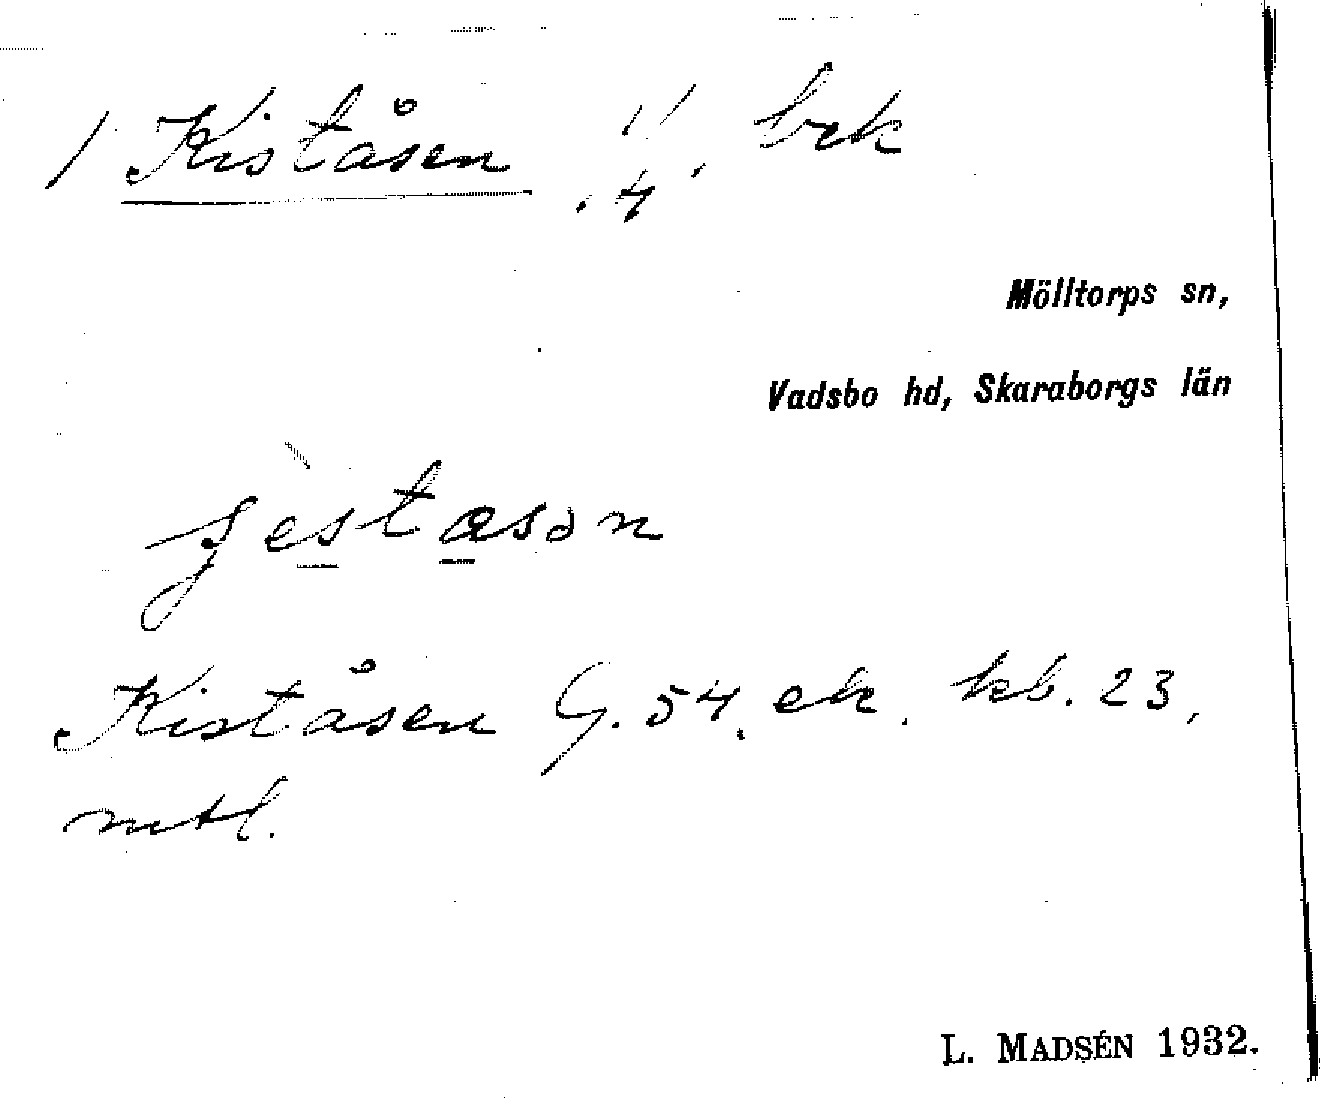 1 Kiståsen 1/4, brk
Mölltorps sn,
Vadsbo hd, Skaraborgs län
Kiståsen G. 54, ek. kb. 23,
mtl.
L. MADSÉN 1932.